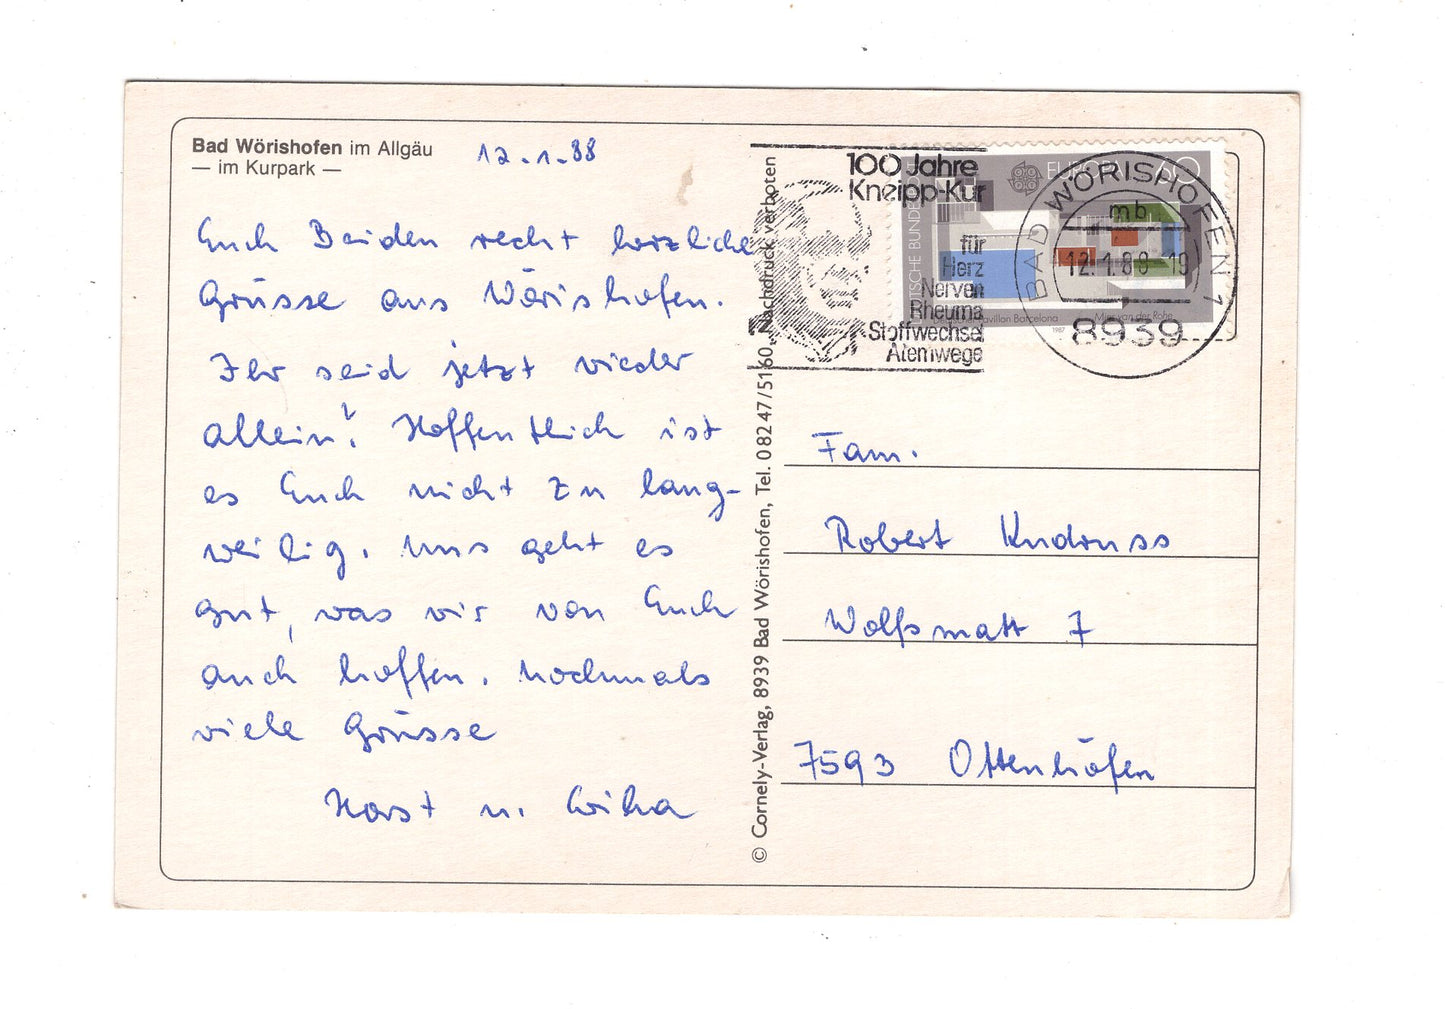 Bad Wörishofen im Allgäu
— im Kurpark —
12.1.88
Euch Beiden recht herzliche
Grüsse aus Wörishofen.
Ihr seid jetzt wieder
allein? Hoffentlich ist
es Euch nicht zu lang-
weilig. Uns geht es
gut, was wir von Euch
auch hoffen. Nochmals
viele Grüsse
Horst u.
© Cornely-Verlag, 8939 Bad Wörishofen, Tel. 08247/5160, Nachdruck verboten
100 Jahre
Kneipp-Kur
für
Herz
Nerven
Rheuma
Stoffwechsel
Atemwege
EUROPA 60
DEUTSCHE BUNDESPOST
Deutscher Pavillon Barcelona Mies van der Rohe
1987
BAD WÖRISHOFEN 1
mb
12.1.88-19
8939
Fam.
Robert
Wolfsmatt 7
7593 Ottenhöfen